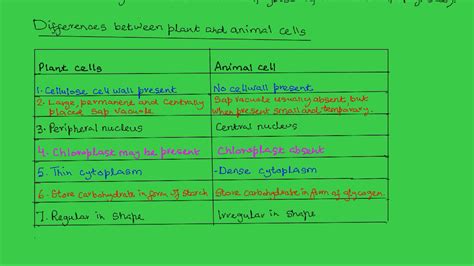 Differences between plant and animal cells
Plant cells
Animal cell
1. Cellulose cell wall present
No cell wall present
2. Large, permanent and centrally
placed sap vacuole
Sap vacuole usually absent, but
when present small and temporary.
3. Peripheral nucleus
Central nucleus
4. Chloroplast may be present
Chloroplast absent
5. Thin cytoplasm
- Dense cytoplasm
6. Store carbohydrate in form of starch
Store carbohydrate in form of glycogen
7. Regular in shape
Irregular in shape